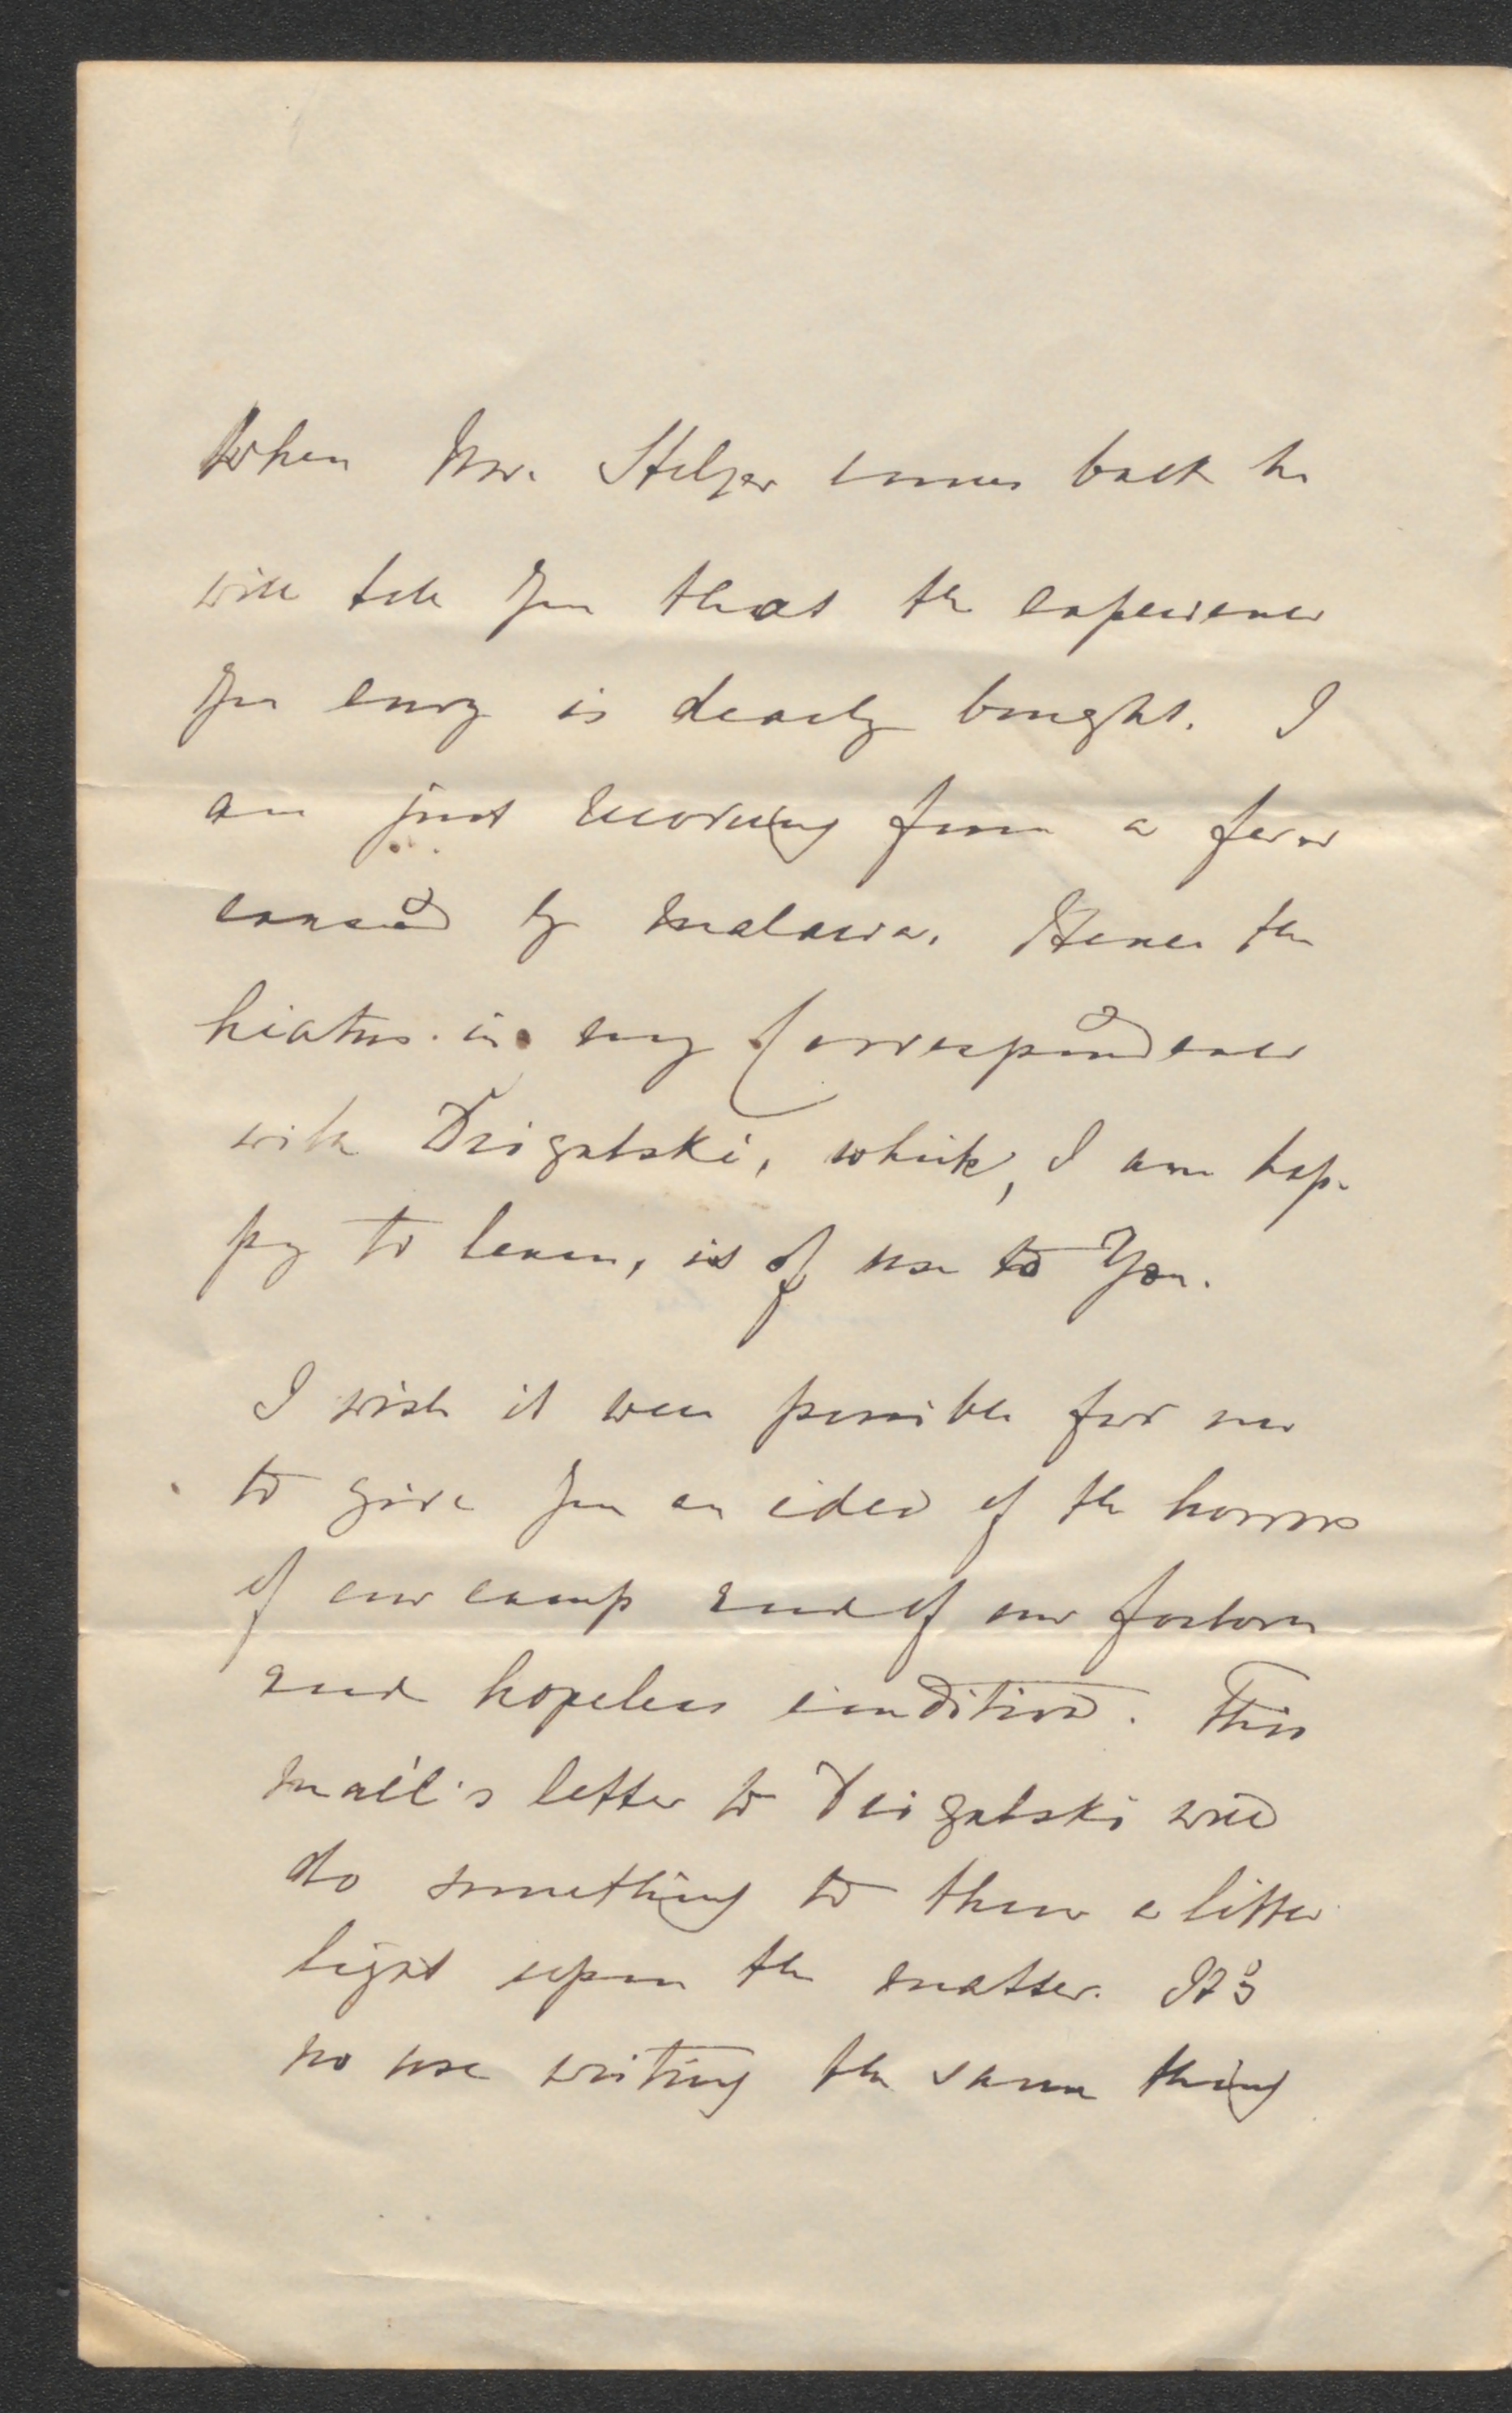 When Mr. Stelzer comes back he
will tell You that the experience
You envy is dearly bought. I
am just recovering from a fever
caused by malaria. Hence the
hiatus in my Correspondence
with Drigalski, which, I am hap-
py to learn, is of use to You.
I wish it were possible for me
to give You an idea of the horrors
of our camp and of our forlorn
and hopeless condition. This
mail's letter to Drigalski will
do something to throw a little
light upon the matter. It's
no use writing the same thing